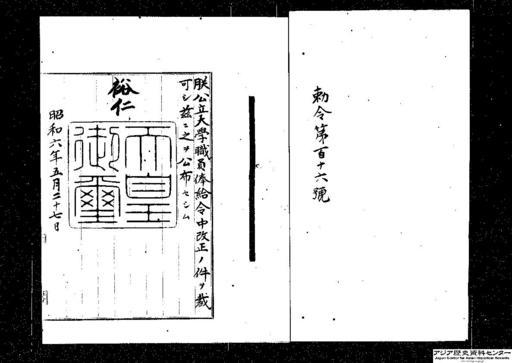 勅令第百十六號
朕公立大學職員俸給令中改正ノ件ヲ裁
可シ茲ニ之ヲ公布セシム
裕仁
天皇
御璽
昭和六年五月二十七日
アジア歴史資料センター
Japan Center for Asian Historical Records